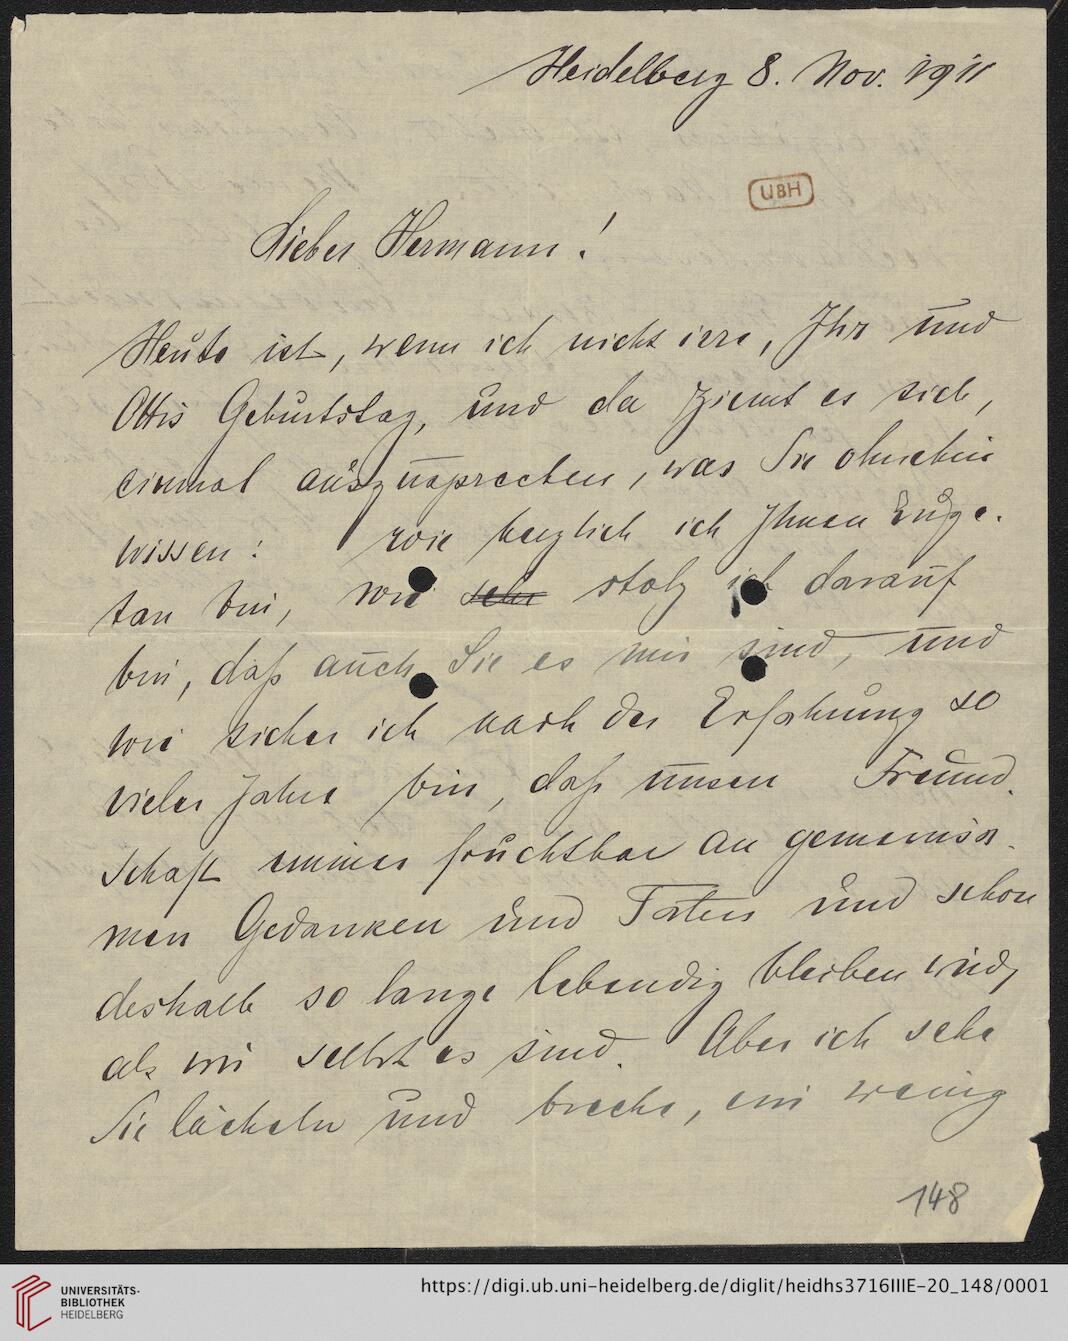 Heidelberg 8. Nov. 1911
UBH
Lieber Hermann!
Heute ist, wenn ich nicht irre, Ihr und
Ottis Geburtstag, und da ziemt es sich,
einmal auszusprechen, was Sie ohnehin
wissen: wie herzlich ich Ihnen Zuge-
tan bin, wie sehr stolz ich darauf
bin, daß auch Sie es mir sind, und
wie sicher ich nach der Erfahrung so
vieler Jahre bin, daß unsere Freund-
schaft immer fruchtbar an gemeinsa-
men Gedanken und Taten und schon
deshalb so lange lebendig bleiben wird,
als wir selbst es sind. Aber ich sehe
Sie lächeln und breche, ein wenig
148
UNIVERSITÄTS-
BIBLIOTHEK
HEIDELBERG
https://digi.ub.uni-heidelberg.de/diglit/heidhs3716IIIE-20_148/0001